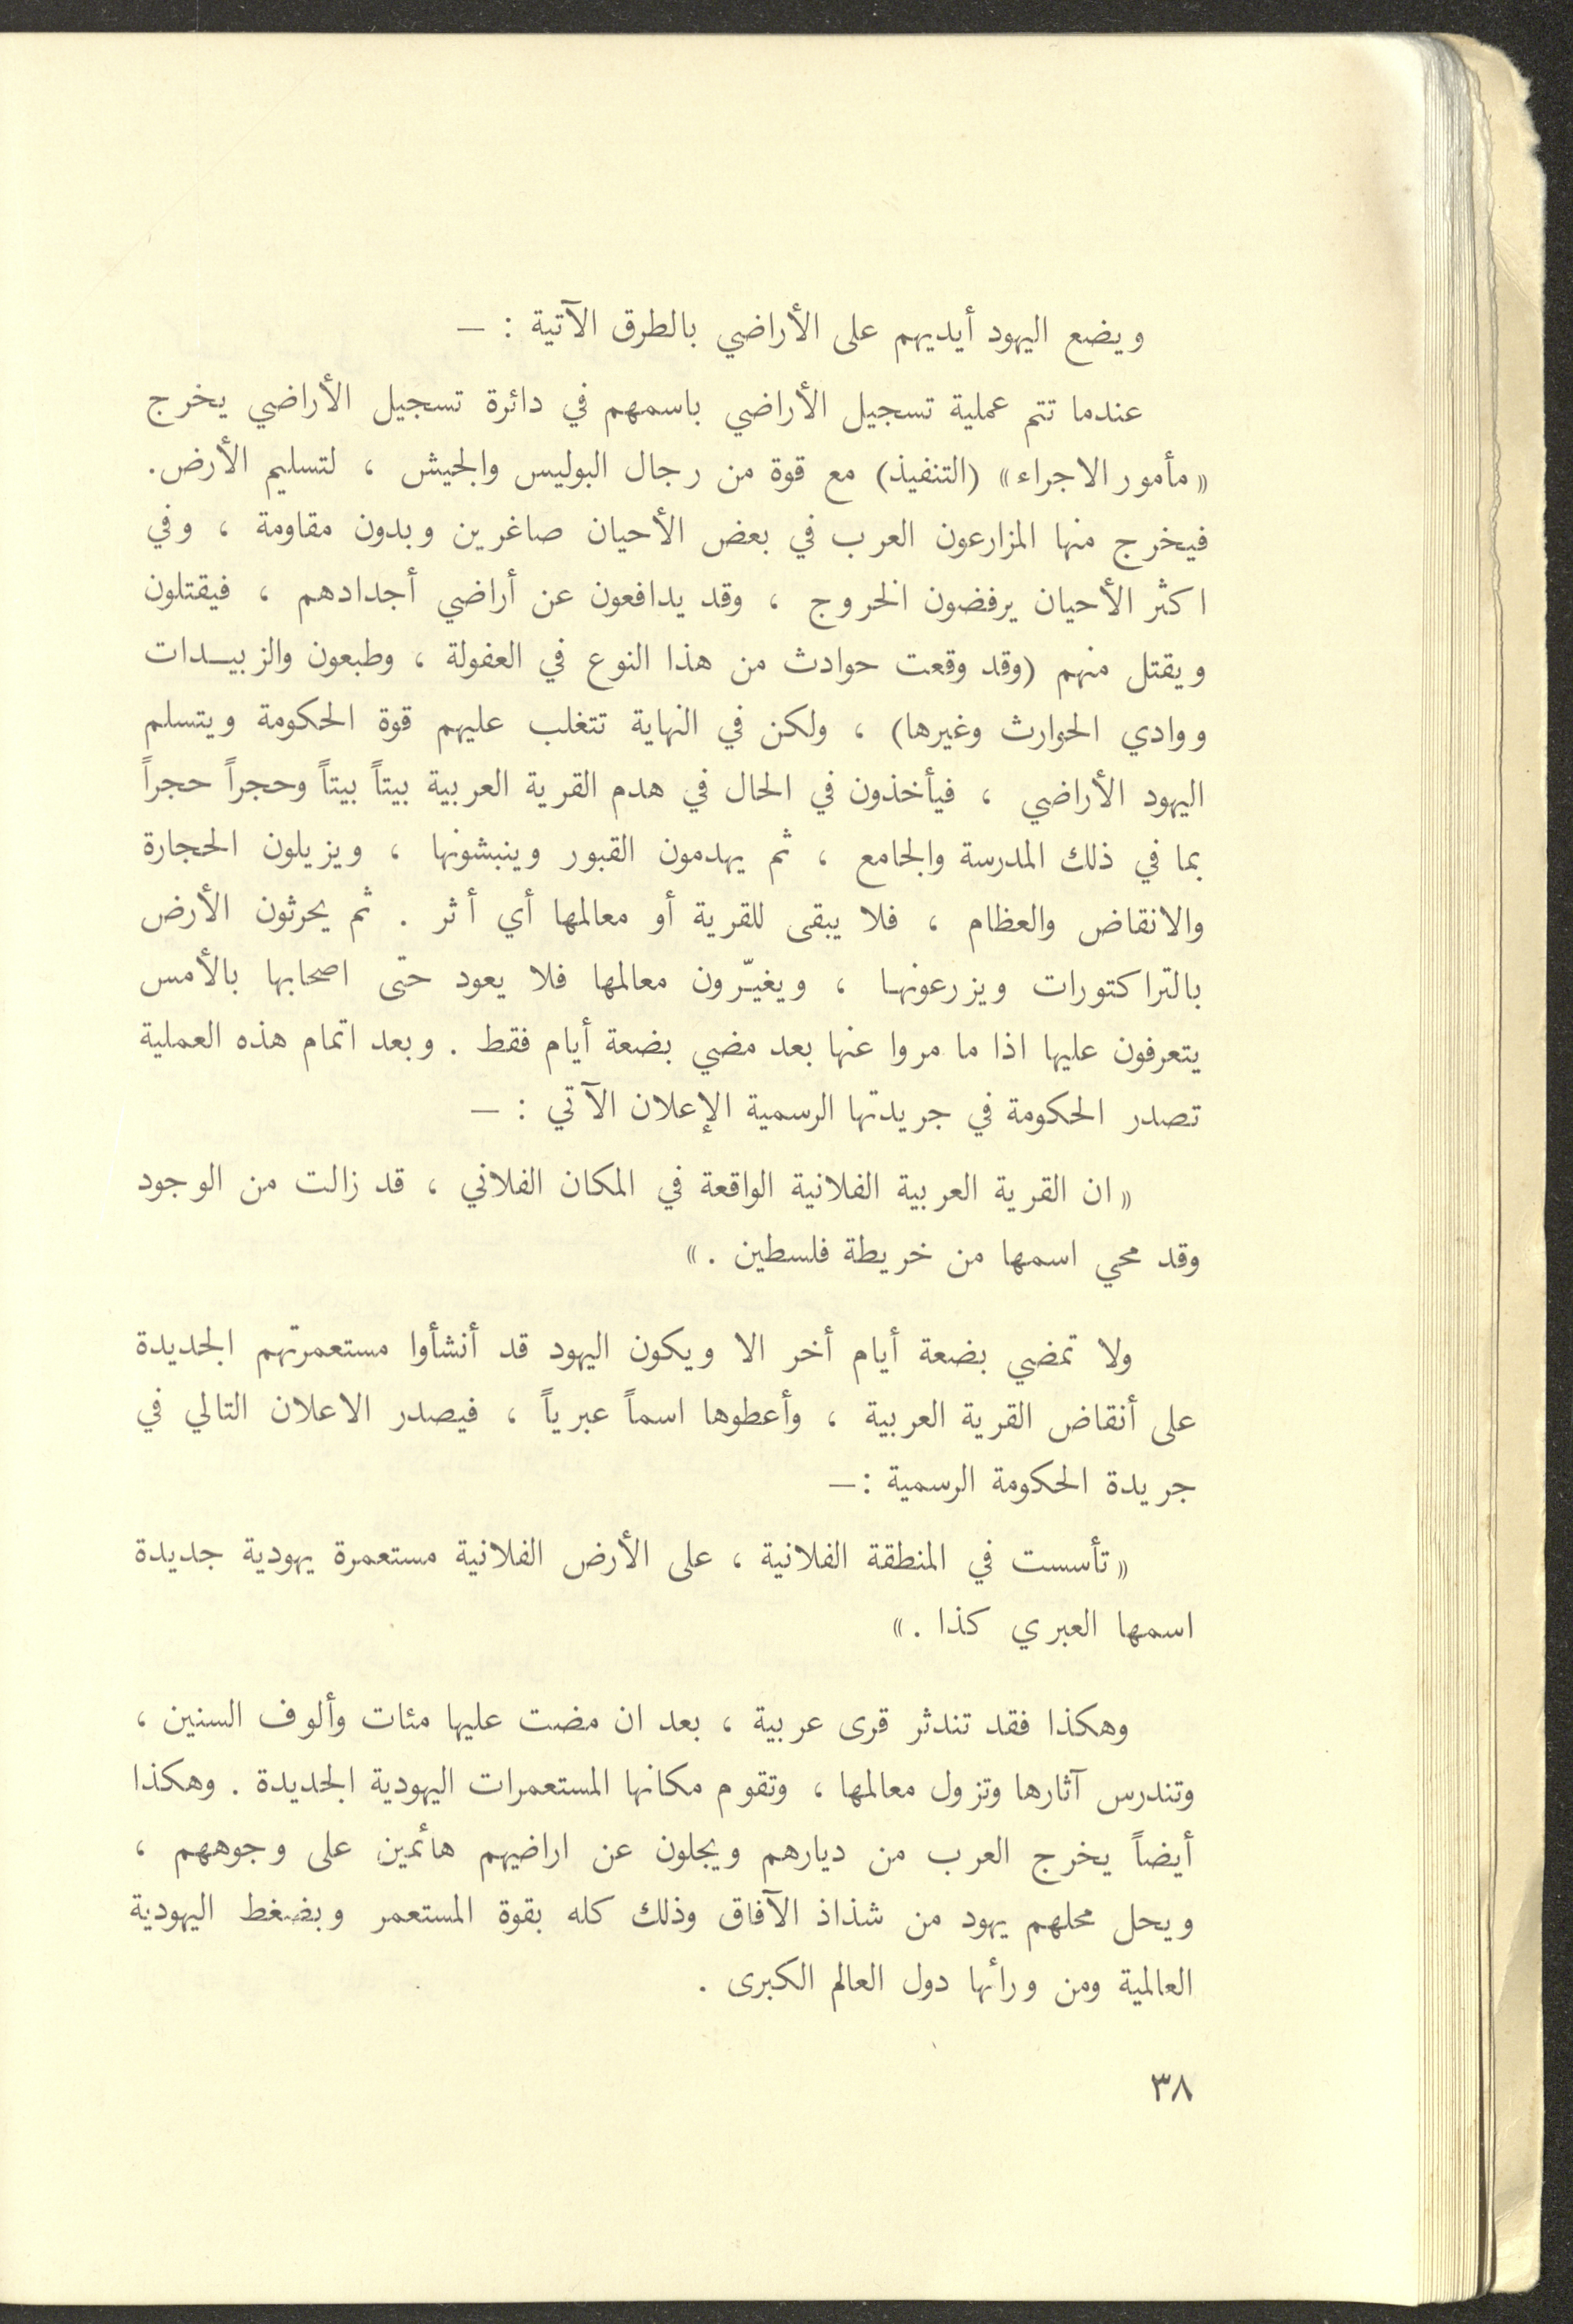 ويضع اليهود أيديهم على الأراضي بالطرق الآتية : —
عندما تتم عملية تسجيل الأراضي باسمهم في دائرة تسجيل الأراضي يخرج
« مأمور الاجراء » (التنفيذ) مع قوة من رجال البوليس والجيش ، لتسليم الأرض.
فيخرج منها المزارعون العرب في بعض الأحيان صاغرين وبدون مقاومة ، وفي
اكثر الأحيان يرفضون الخروج ، وقد يدافعون عن أراضي أجدادهم ، فيقتلون
ويقتل منهم (وقد وقعت حوادث من هذا النوع في العفولة ، وطبعون والزبيـدات
ووادي الحوارث وغيرها) ، ولكن في النهاية تتغلب عليهم قوة الحكومة ويتسلم
اليهود الأراضي ، فيأخذون في الحال في هدم القرية العربية بيتاً بيتاً وحجراً حجراً
بما في ذلك المدرسة والجامع ، ثم يهدمون القبور وينبشونها ، ويزيلون الحجارة
والانقاض والعظام ، فلا يبقى للقرية أو معالمها أي أثر . ثم يحرثون الأرض
بالتراكتورات ويزرعونهـا ، ويغيـّرون معالمها فلا يعود حتى اصحابها بالأمس
يتعرفون عليها اذا ما مروا عنها بعد مضي بضعة أيام فقط . وبعد اتمام هذه العملية
تصدر الحكومة في جريدتها الرسمية الإعلان الآتي : —
« ان القرية العربية الفلانية الواقعة في المكان الفلاني ، قد زالت من الوجود
وقد محي اسمها من خريطة فلسطين . »
ولا تمضي بضعة أيام أخر الا ويكون اليهود قد أنشأوا مستعمرتهم الجديدة
على أنقاض القرية العربية ، وأعطوها اسماً عبرياً ، فيصدر الاعلان التالي في
جريدة الحكومة الرسمية :—
« تأسست في المنطقة الفلانية ، على الأرض الفلانية مستعمرة يهودية جديدة
اسمها العبري كذا . »
وهكذا فقد تندثر قرى عربية ، بعد ان مضت عليها مئات وألوف السنين ،
وتندرس آثارها وتزول معالمها ، وتقوم مكانها المستعمرات اليهودية الجديدة . وهكذا
أيضاً يخرج العرب من ديارهم ويجلون عن اراضيهم هائمين على وجوههم ،
ويحل محلهم يهود من شذاذ الآفاق وذلك كله بقوة المستعمر وبضغط اليهودية
العالمية ومن ورائها دول العالم الكبرى .
٣٨